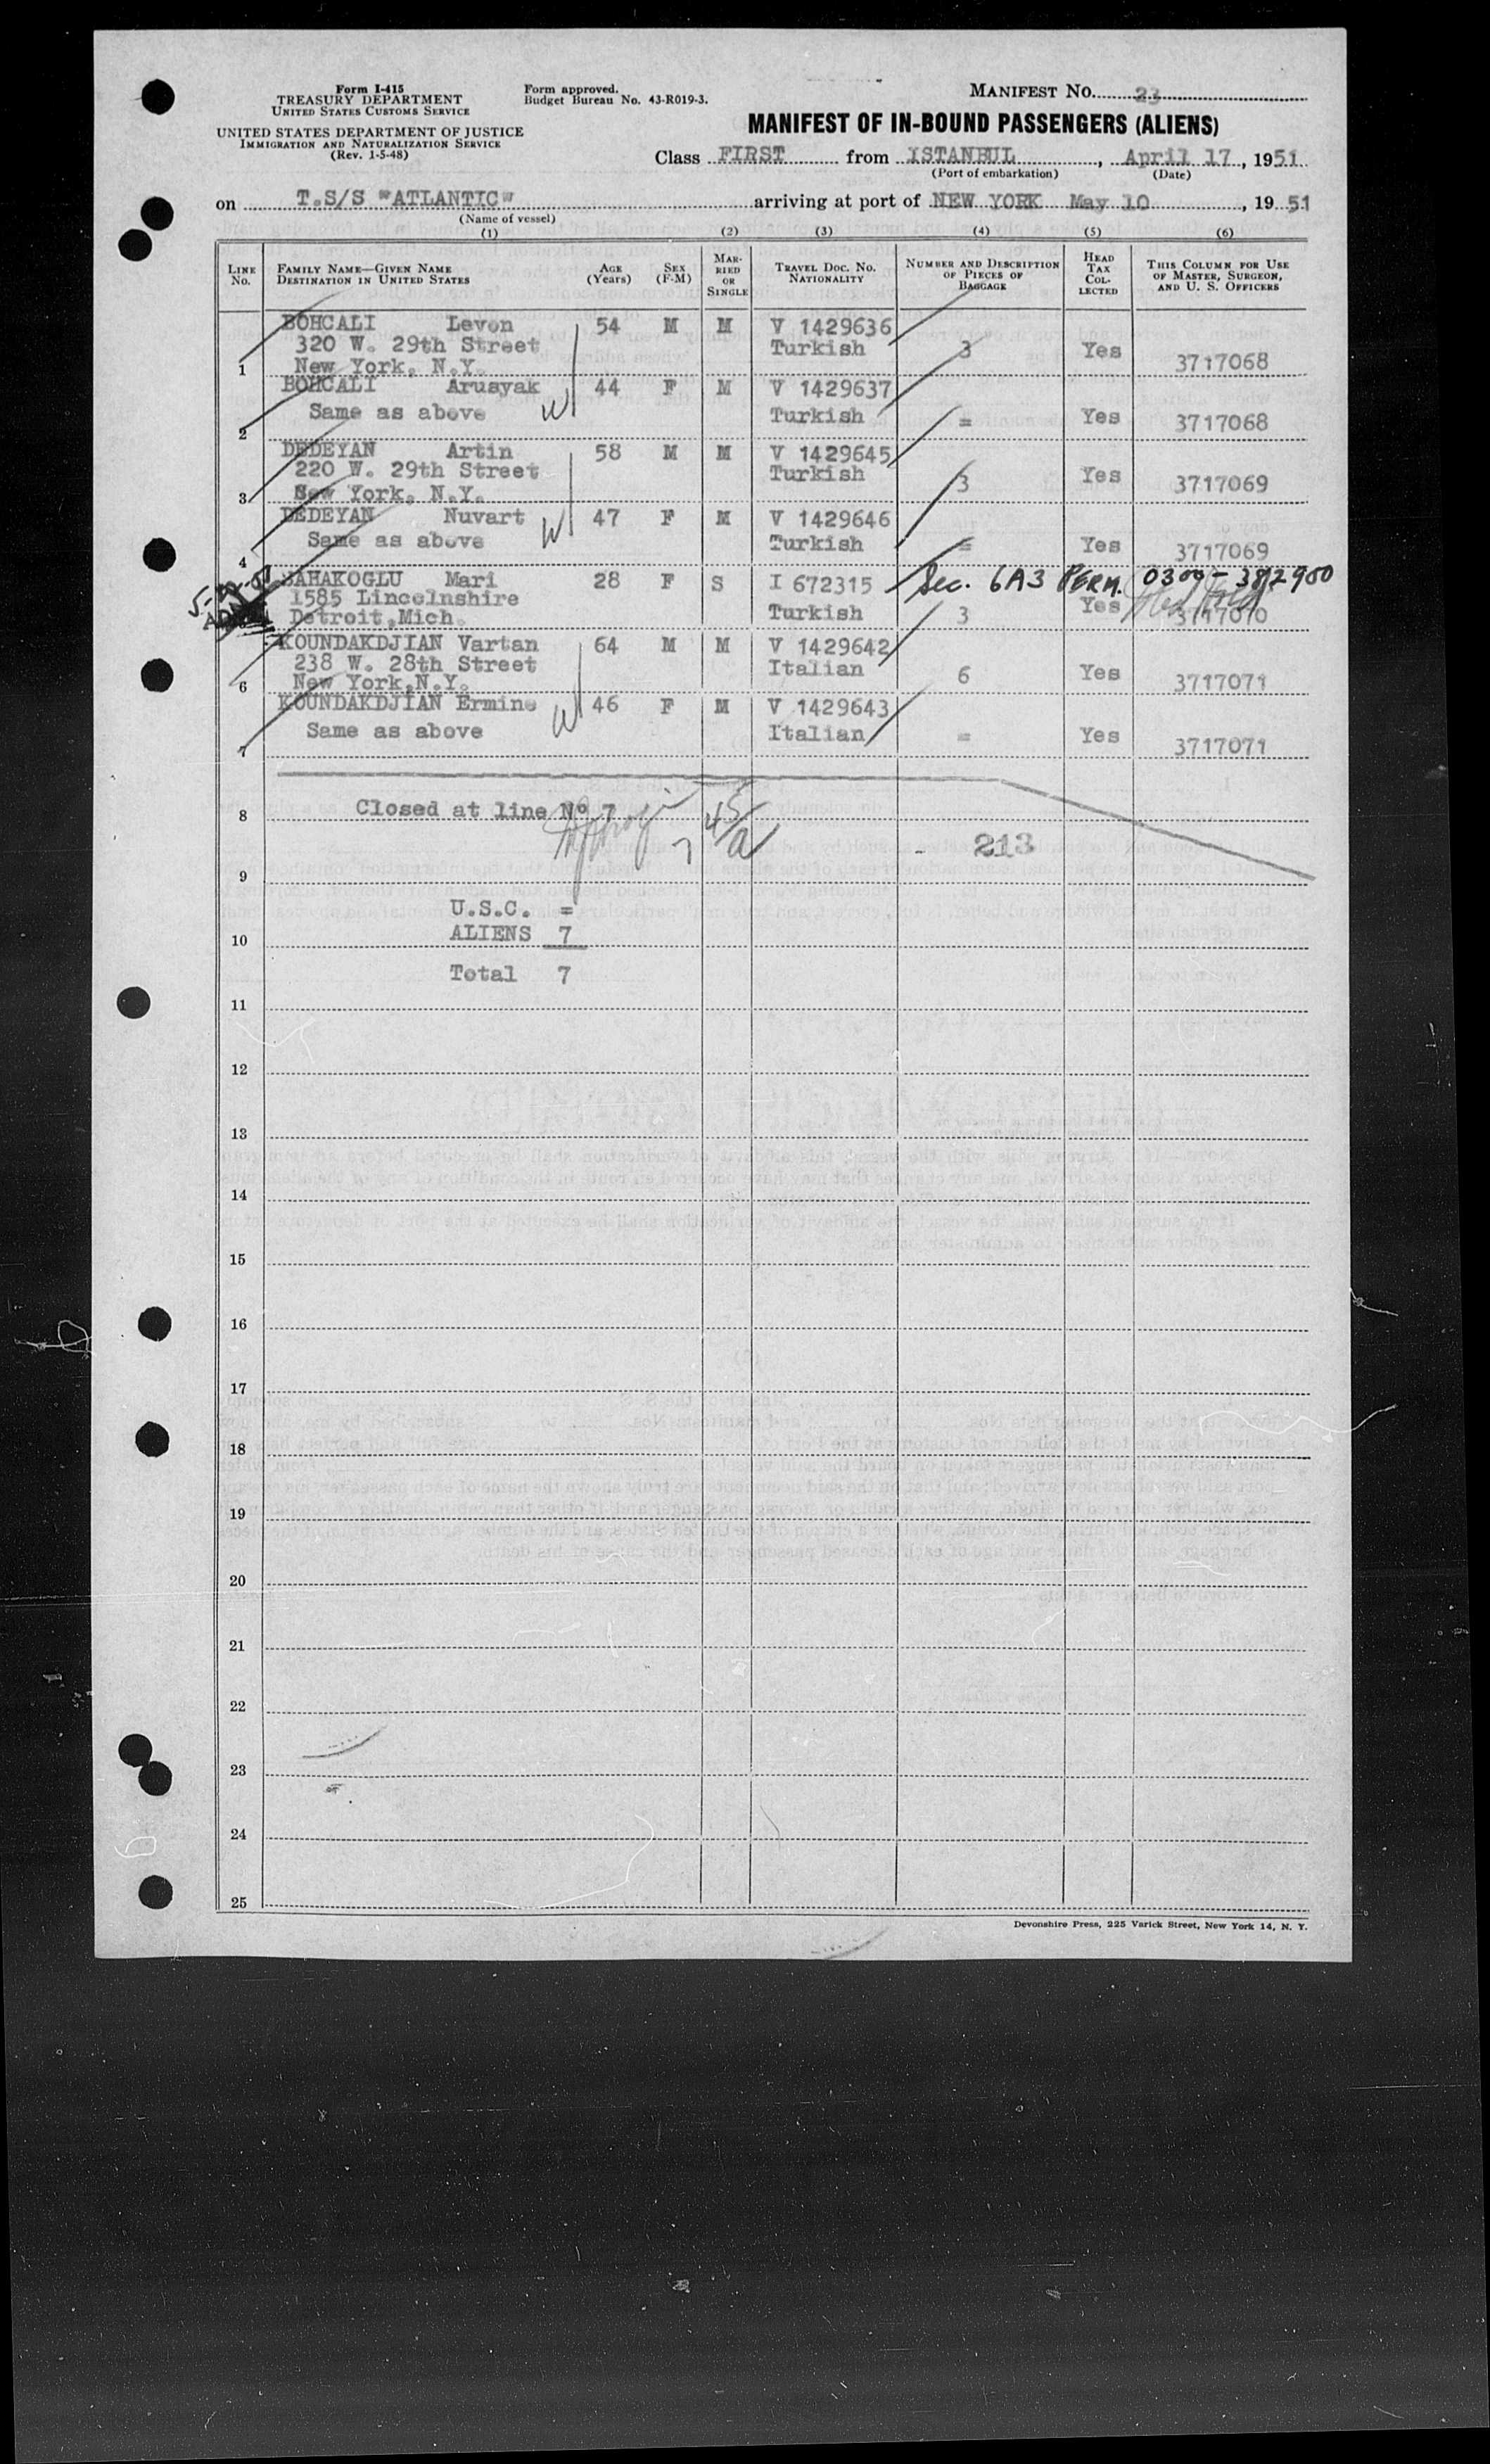 Form I-415
TREASURY DEPARTMENT
UNITED STATES CUSTOMS SERVICE
UNITED STATES DEPARTMENT OF JUSTICE
IMMIGRATION AND NATURALIZATION SERVICE
(Rev. 1-5-48)
Form approved.
Budget Bureau No. 43-R019-3.
MANIFEST NO. 23
MANIFEST OF IN-BOUND PASSENGERS (ALIENS)
Class FIRST from ISTANBUL, April 17, 1951
(Port of embarkation) (Date)
on T.S/S "ATLANTIC" arriving at port of NEW YORK May 10, 19 51
(Name of vessel)
(1) (2) (3) (4) (5) (6)
LINE NO. FAMILY NAME—GIVEN NAME DESTINATION IN UNITED STATES AGE (Years) SEX (F-M) MARRIED OR SINGLE TRAVEL DOC. NO. NATIONALITY NUMBER AND DESCRIPTION OF PIECES OF BAGGAGE HEAD TAX COLLECTED THIS COLUMN FOR USE OF MASTER, SURGEON, AND U. S. OFFICERS
BOHCALI Levon 54 M M V 1429636
320 W. 29th Street Turkish 3 Yes
1 New York, N.Y. 3717068
BOHCALI Arusyak 44 F M V 1429637
Same as above W Turkish = Yes
2 3717068
DEDEYAN Artin 58 M M V 1429645
220 W. 29th Street Turkish 3 Yes
3 New York, N.Y. 3717069
DEDEYAN Nuvart 47 F M V 1429646
Same as above W Turkish = Yes
4 3717069
SAHAKOGLU Mari 28 F S I 672315 Sec. 6A3 PERM. 0300-3812900
1585 Lincolnshire Yes
Detroit, Mich. Turkish 3 3717070
KOUNDAKDJIAN Vartan 64 M M V 1429642
238 W. 28th Street Italian 6 Yes
6 New York, N.Y. 3717071
KOUNDAKDJIAN Ermine 46 F M V 1429643
Same as above W Italian = Yes
7 3717071
8 Closed at line Nº 7
213
9
U.S.C. =
10 ALIENS 7
Total 7
11
12
13
14
15
16
17
18
19
20
21
22
23
24
25
Devonshire Press, 225 Varick Street, New York 14, N. Y.